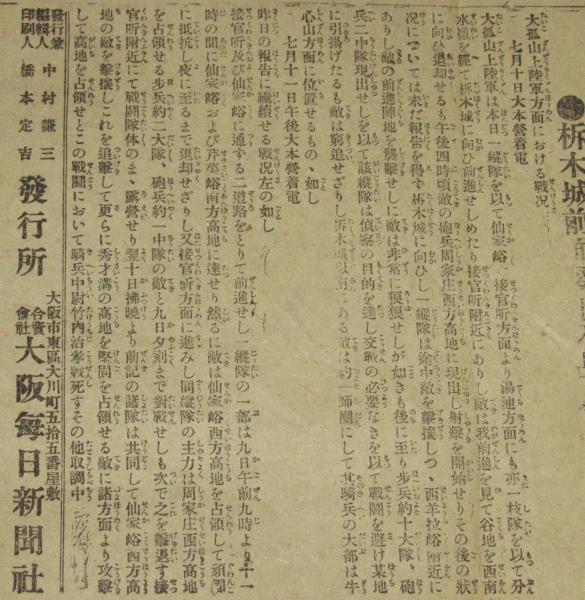 析木城前
大孤山上陸軍方面における戦況
七月十日大本營着電
大孤山上陸軍は本日一縱隊を以て仙家峪、接官听方面より湯池方面にも亦一枝隊を以て分
水嶺を經て析木城に向ひ前進せしめたり接官听附近にありし敵は我前進を見て谷地を西南
に向ひ退却せるも午後四時頃敵の砲兵周家庄西方高地に現出し射撃を開始せりその後の狀
況については未だ報告を得ず析木城に向ひし一縱隊は途中敵を撃攘しつゝ西羊拉峪附近に
ありし敵の前進陣地を襲撃せしに敵は非常に狼狽せしが如きも後に至り歩兵約十大隊、砲
兵二中隊現出せしを以て該縱隊は偵察の目的を達し交戰の必要なきを以て戰鬪を避け某地
に引揚げたるも敵は窮追せざりし析木城以南にある敵は約一師團にして其騎兵の大部は牛
心山方面に位置せるものゝ如し
七月十一日午後大本營着電
昨日の報告に繼續せる戰况左の如し
接官听及び仙家峪に通ずる二道路をとりて前進せし一縱隊の一部は九日午前九時より十一
時の間に仙家峪および芹菜峪南方高地に達せり然るに敵は仙家峪西方高地を占領して頑固
に抵抗し夜に至るまで退却せざりし又接官听方面に進みし同縱隊の主力は周家庄西方高地
を占領せる歩兵約二大隊、砲兵約一中隊の敵と九日夕刻まで對戰せしも次で之を撃退す接
官听附近にて戰鬪隊体のまゝ露營せり翌十日拂曉より前記の諸隊は共同して仙家峪西方高
地の敵を撃攘しこれを追撃して更らに秀才溝の高地を堅固を占領せる敵に諸方面より攻撃
して高地を占領せとこの戰鬪において騎兵中尉竹内治孝戰死すその他取調中
發行兼編輯人 中村謙三
印刷人 橋本定吉
發行所
大阪市東區大川町五拾五番屋敷
合資會社 大阪毎日新聞社